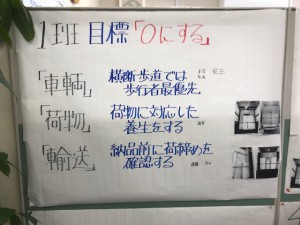 1班 目標「0にする」
「車輌」 横断歩道では
歩行者最優先
「荷物」 荷物に対応した
養生をする
「輸送」 納品前に荷締めを
確認する